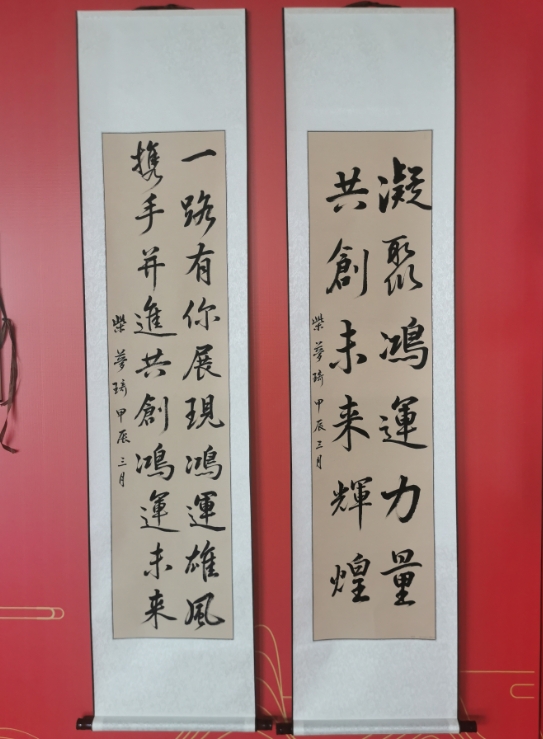 凝聚鴻運力量
共創未来輝煌
柴夢琦 甲辰三月
一路有你展現鴻運雄風
携手并進共創鴻運未来
柴夢琦 甲辰三月